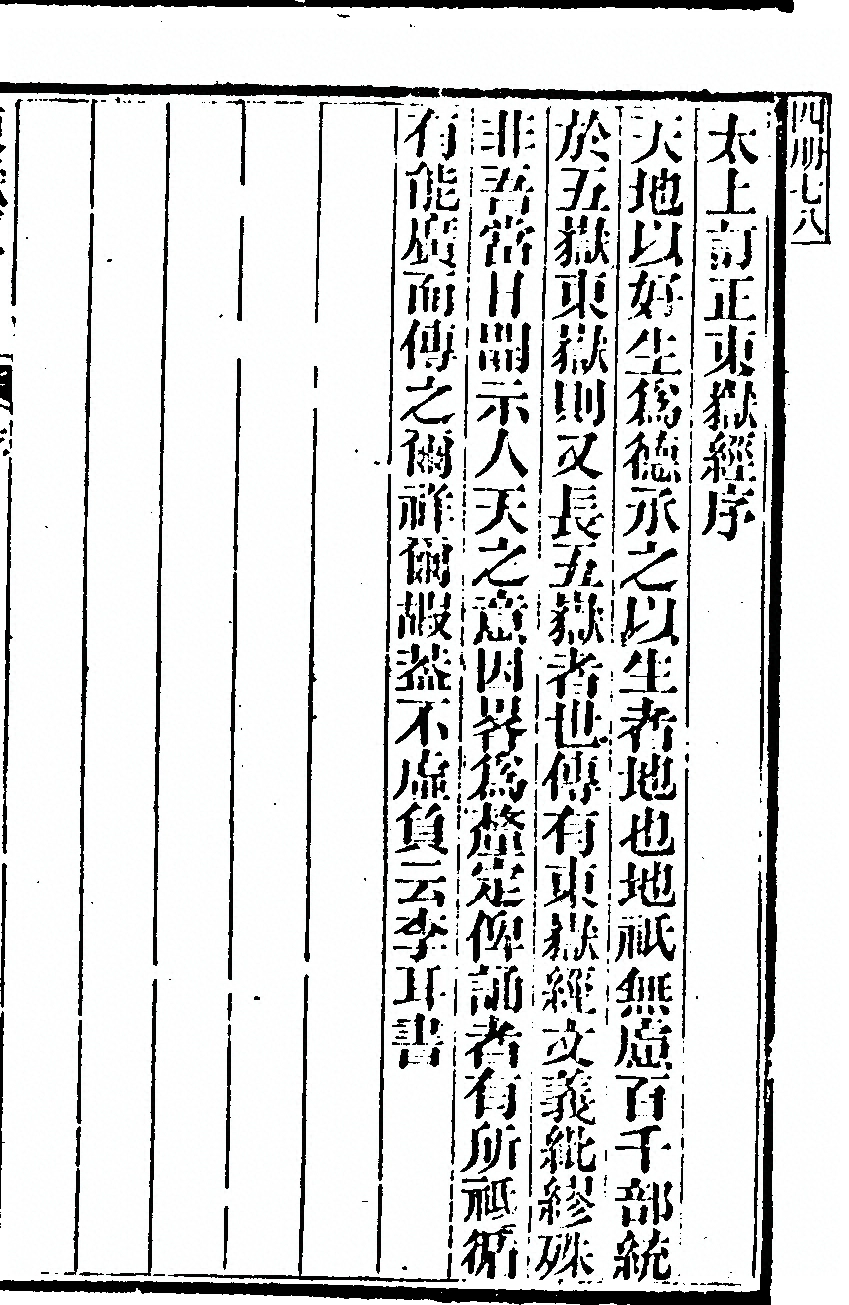 四册七八
太上訂正東嶽經序
天地以好生爲德承之以生者地也地祇無慮百千部統
於五嶽東嶽則又長五嶽者也傳有東嶽經文義紕繆殊
非吾當日開示人天之意因畧爲釐定俾誦者有所祗循
有能廣而傳之爾祥爾嘏葢不虛負云李耳書